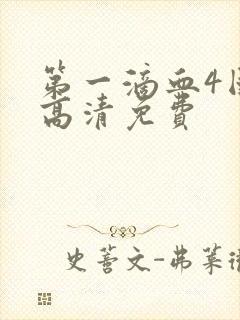 第一滴血4国
高清免费
史蒈文-弗莱